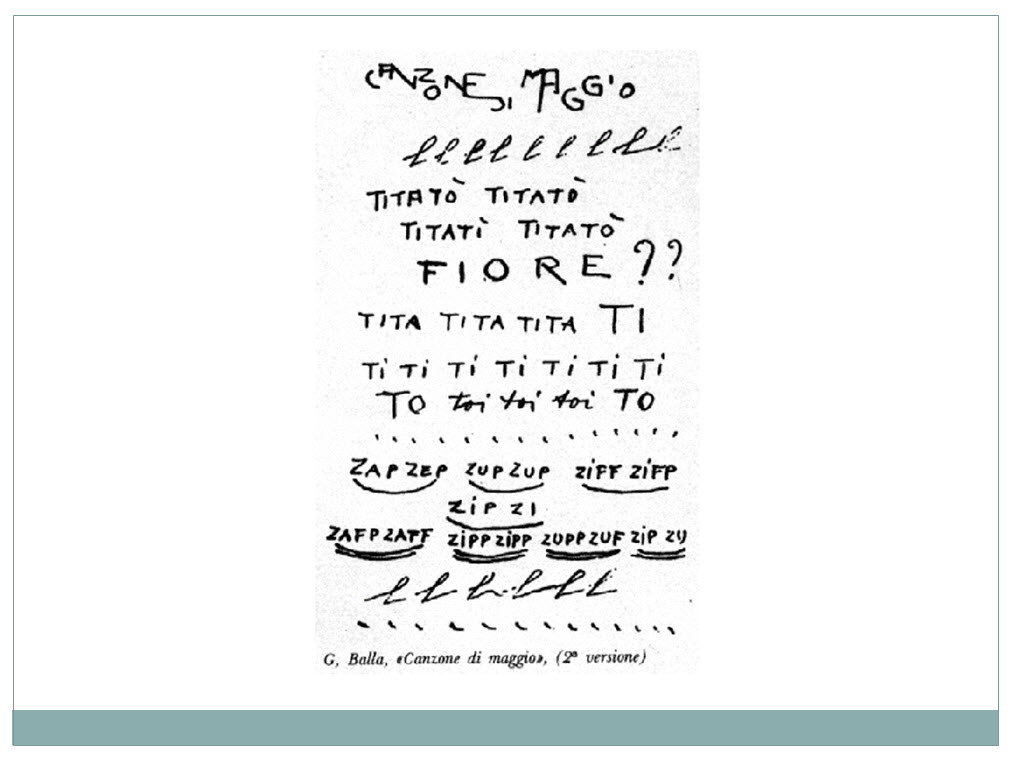 CANZONE DI MAGGIO
lllllllll
TITATÒ TITATÒ
TITATÌ TITATÒ
FIORE ??
TITA TITA TITA TI
Ti Ti Ti Ti Ti Ti Ti
TO toi toi toi TO
ZAP ZEP ZUP ZUP ZiFF ZiFP
ZiP ZI
ZAFP ZATF ZiPP ZiPP ZUPP ZUF ZiP ZU
llllll
G, Balla, «Canzone di maggio», (2ª versione)